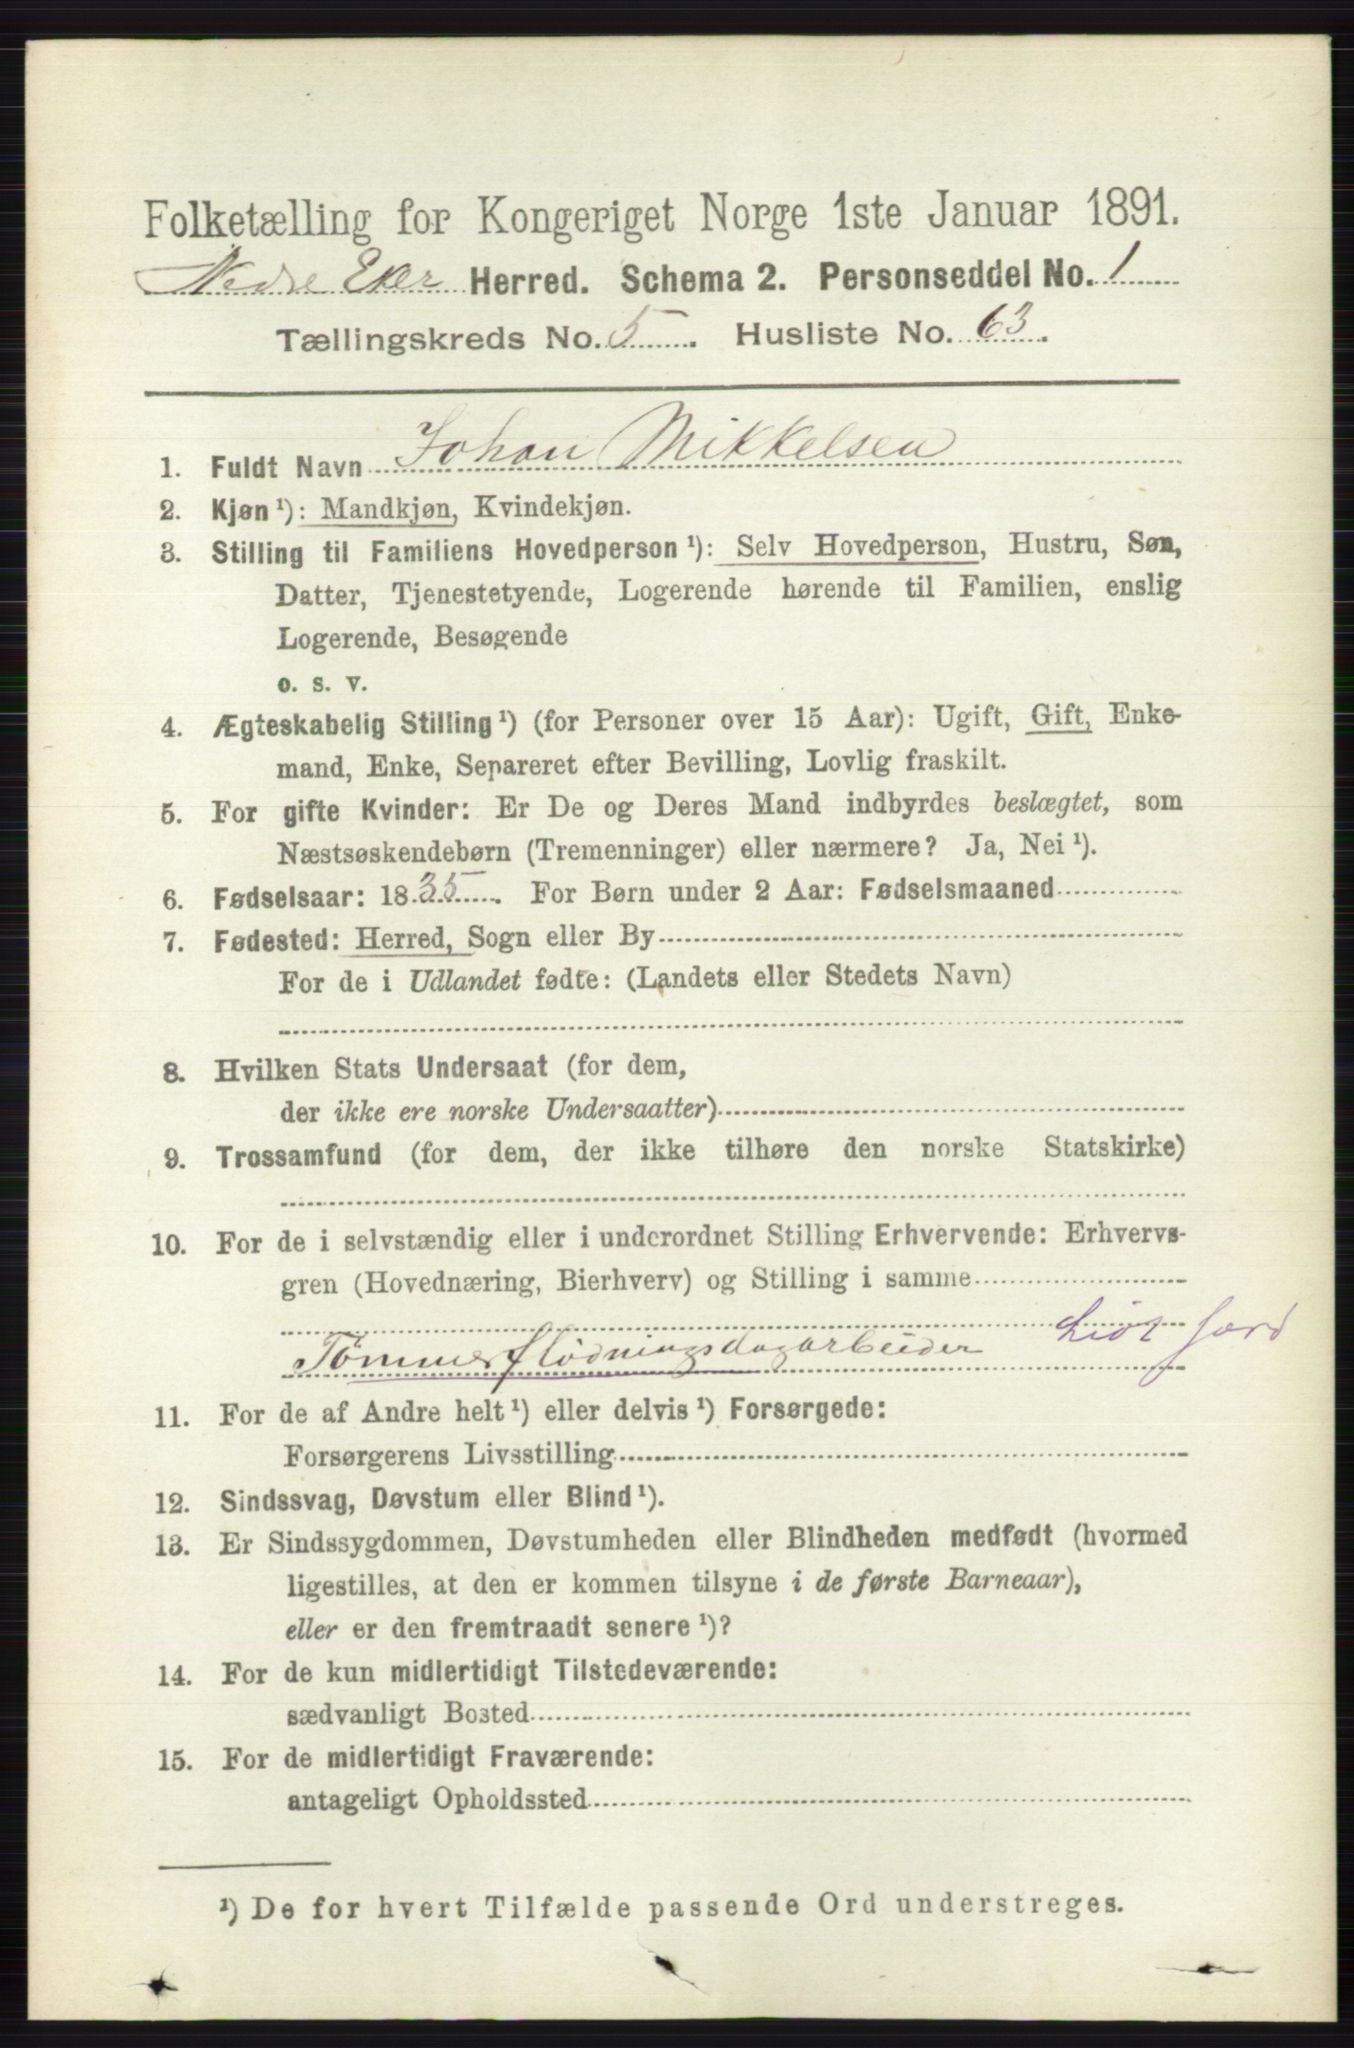 Folketælling for Kongeriget Norge 1ste Januar 1891.
Nedre Eker Herred. Schema 2. Personseddel No. 1
Tællingskreds No. 5. Husliste No. 63.
1. Fuldt Navn Johan Mikkelsen
2. Kjøn ¹): Mandkjøn, Kvindekjøn.
3. Stilling til Familiens Hovedperson ¹): Selv Hovedperson, Hustru, Søn,
Datter, Tjenestetyende, Logerende hørende til Familien, enslig
Logerende, Besøgende
o. s. v.
4. Ægteskabelig Stilling ¹) (for Personer over 15 Aar): Ugift, Gift, Enke-
mand, Enke, Separeret efter Bevilling, Lovlig fraskilt.
5. For gifte Kvinder: Er De og Deres Mand indbyrdes beslægtet, som
Næstsøskendebørn (Tremenninger) eller nærmere? Ja, Nei ¹).
6. Fødselsaar: 1835. For Børn under 2 Aar: Fødselsmaaned
7. Fødested: Herred, Sogn eller By
For de i Udlandet fødte: (Landets eller Stedets Navn)
8. Hvilken Stats Undersaat (for dem,
der ikke ere norske Undersaatter)
9. Trossamfund (for dem, der ikke tilhøre den norske Statskirke)
10. For de i selvstændig eller i underordnet Stilling Erhvervende: Erhvervs-
gren (Hovednæring, Bierhverv) og Stilling i samme
Tømmerflødningsdagarbeider jord
11. For de af Andre helt ¹) eller delvis ¹) Forsørgede:
Forsørgerens Livsstilling
12. Sindssvag, Døvstum eller Blind ¹).
13. Er Sindssygdommen, Døvstumheden eller Blindheden medfødt (hvormed
ligestilles, at den er kommen tilsyne i de første Barneaar),
eller er den fremtraadt senere ¹)?
14. For de kun midlertidigt Tilstedeværende:
sædvanligt Bosted
15. For de midlertidigt Fraværende:
antageligt Opholdssted
¹) De for hvert Tilfælde passende Ord understreges.